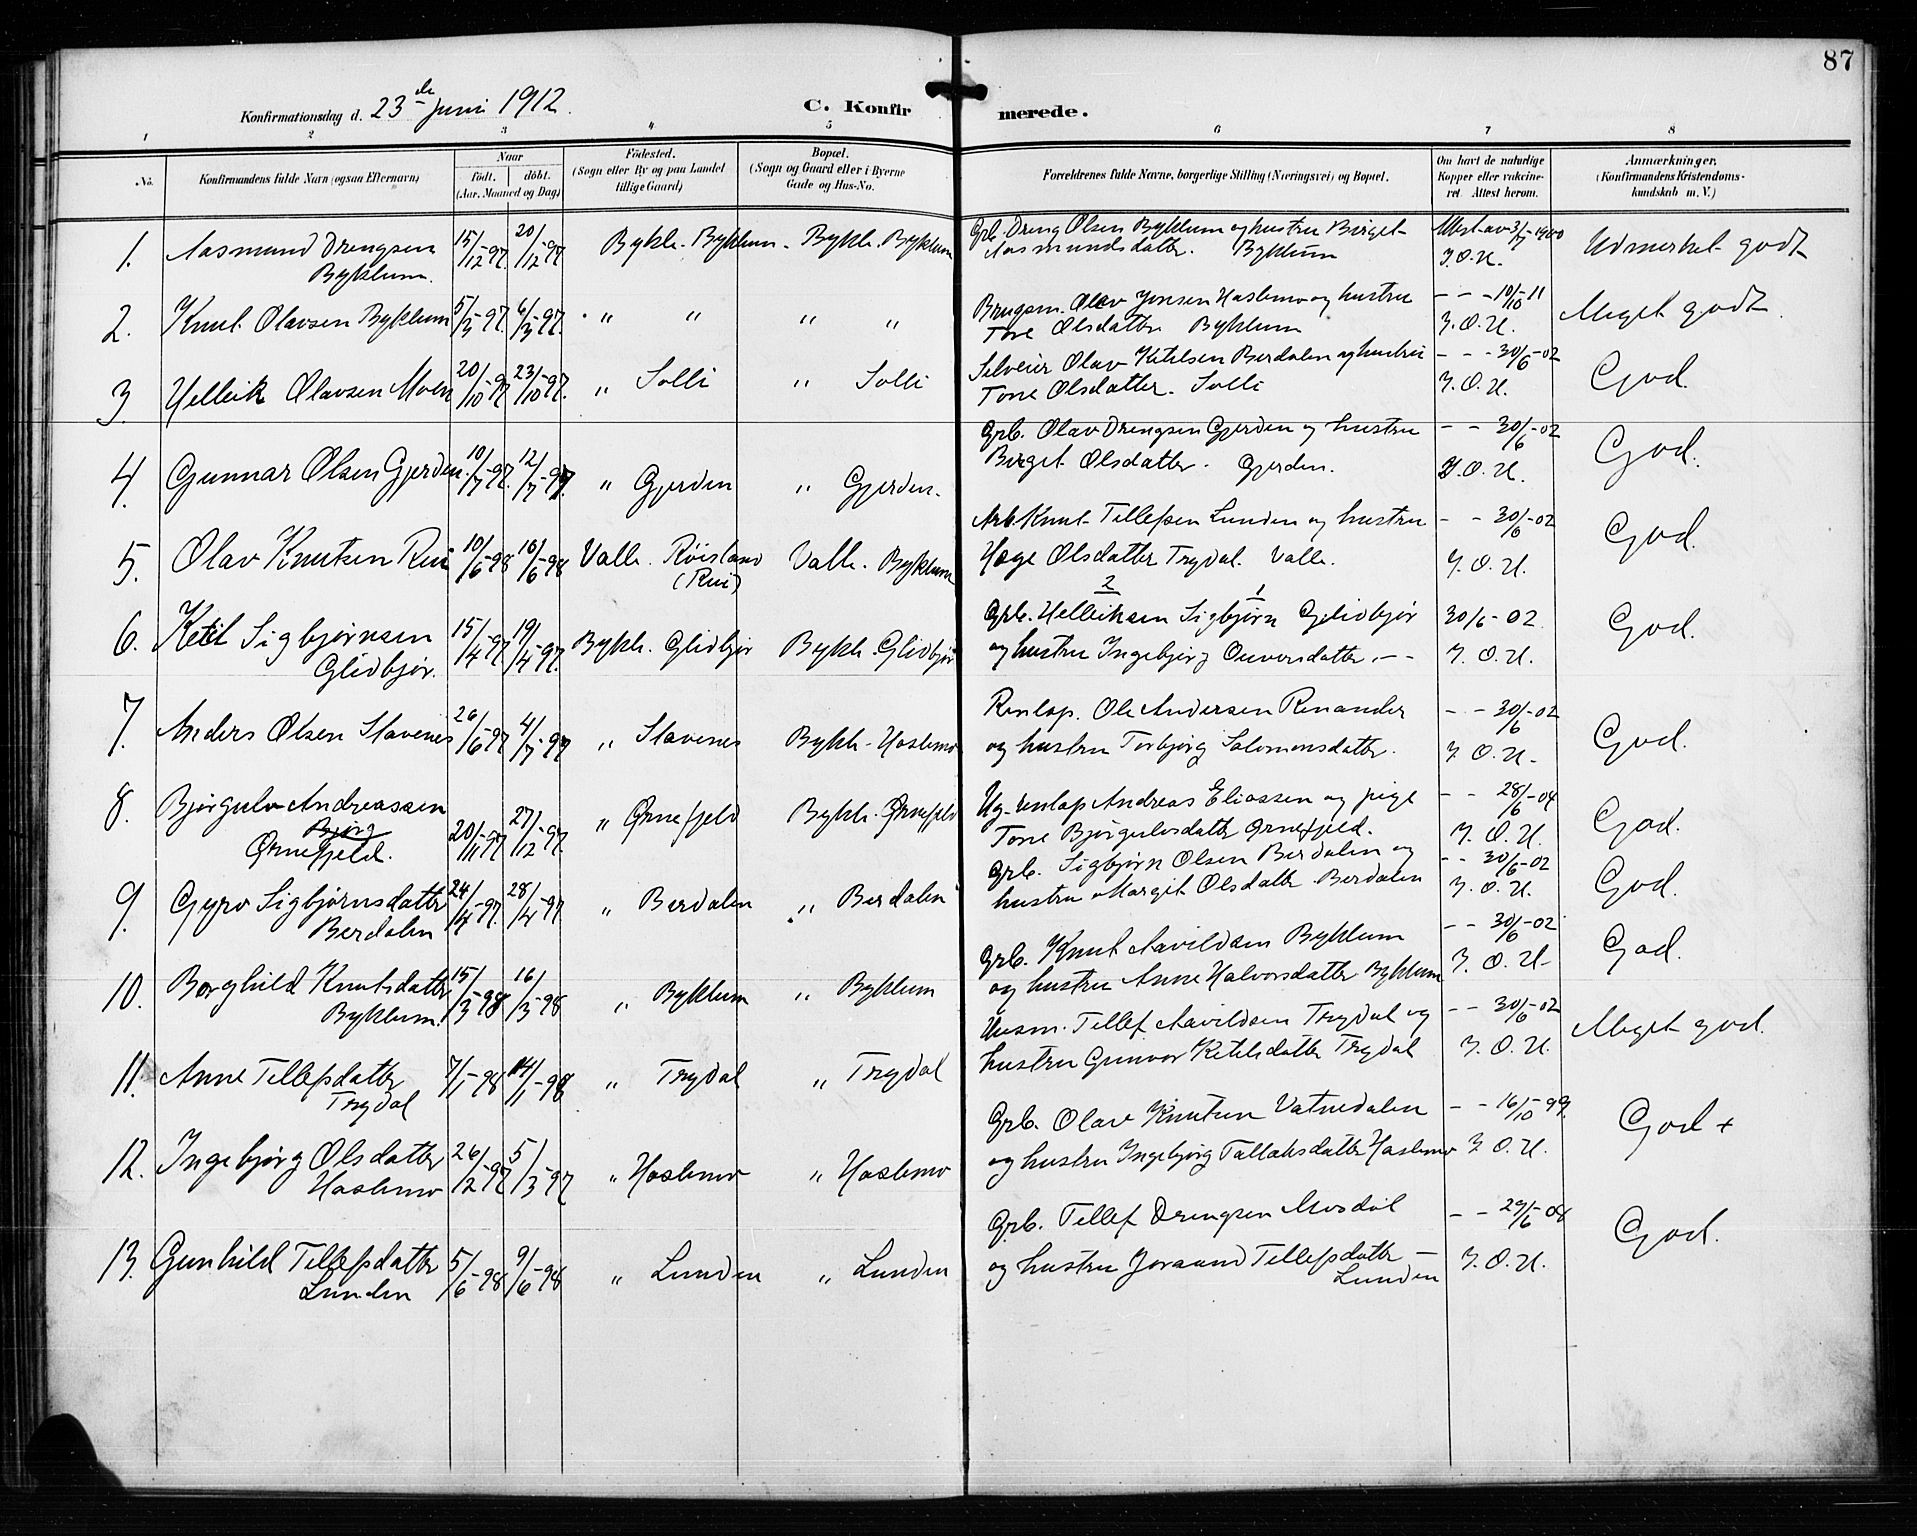 87
Konfirmationsdag d. 23de Juni 1912.
C. Konfirmerede.
1 2 3 4 5 6 7 8
No.
Konfirmandens fulde Navn (ogsaa Efternavn)
Naar
födt. döbt.
(Aar, Maaned og Dag)
Födested.
(Sogn eller By og paa Landet
tillige Gaard)
Bopæl.
(Sogn og Gaard eller i Byerne
Gade og Hus-No.
Forældrenes fulde Navne, borgerlige Stilling (Næringsvei) og Bopæl.
Om havt de naturlige
Kopper eller vakcine-
ret. Attest herom.
Anmærkninger.
(Konfirmandens Kristendoms-
kundskab m. V.)
1. Aasmund Drengsen 15/12-97. 20/12-97. Bykle. Byklum. Bykle. Byklum Grb. Dreng Olsen Byklum og hustru Birget Attest av 3/7-1900 Udmerket godt
Byklum. Aasmundsdatter. Byklum J.O.U.
2. Knut Olavsen Byklum 5/3-97. 6/3-97. " " " " Brugsm. Olav Jonsen Haslemo og hustru - - - 10/10-11 Meget godt.
Tone Olsdatter Byklum J.O.U.
3. Helleik Olavsen Moen 20/10-97 23/10-97. " Solli " Solli Selveier Olav Ketilsen Berdalen og hustru - - - 30/6-02 God.
Tone Olsdatter. Solli J.O.U.
4. Gunnar Olsen Gjerden. 10/7-97. 12/7-97. " Gjerden " Gjerden. Grb. Olav Drengsen Gjerden og hustru - - 30/6-02 God.
Birget Olsdatter. Gjerden. J.O.U.
5. Olav Knutsen Rui 10/6-98 16/6-98 Valle. Röisland Valle. Byklum Arb. Knut Tellefsen Lunden og hustru - - 30/6-02 God.
(Rui) Hæge Olsdatter Trydal. Valle. J.O.U.
2 1
6. Ketil Sigbjørnsen 15/4-97 19/4-97. Bykle. Glidbjör Bykle. Glidbjör Grb. Helleiksen Sigbjørn Glidbjör 30/6-02. God.
Glidbjör. og hustru Ingebjørg Ouversdatter. - - J.O.U.
7. Anders Olsen Stavenes 26/6-97 4/7-97 " Stavenes Bykle. Haslemo Renlap. Ole Andersen Renander - - 30/6-02 God.
og hustru Torbjørg Salomonsdatter. J.O.U.
8. Bjørgulv Andreassen 20/11-97 27/12-97. " Ørnefjeld Bykle. Ørnefjeld Ug. renlap Andreas Eliassen og pige - - 28/6-04 God.
Bjørg
Ørnefjeld. Tone Bjørgulvsdatter Ørnefjeld. J.O.U.
9. Gyro Sigbjørnsdatter 24/4-97. 28/4-97. " Berdalen " Berdalen Grb. Sigbjørn Olsen Berdalen og - - 30/6-02 God.
Berdalen hustru Margit Olsdatter Berdalen J.O.U.
10. Borghild Knutsdatter 15/3-98 16/3-98 " Byklum " Byklum Grb. Knut Aavildsen Byklum - - 30/6-02 God.
Byklum. og hustru Anne Halvorsdatter Byklum J.O.U.
11. Anne Tellefsdatter 7/1-98 14/1-98 " Trydal " Trydal Husm. Tellef Aavildsen Trydal og - - 30/6-02 Meget god.
Trydal hustru Gunvor Ketilsdatter Trydal J.O.U.
12. Ingebjørg Olsdatter 26/2-97 5/3-97 " Haslemo " Haslemo Grb. Olav Knutsen Vatnedalen - - 16/10 99. God +
Haslemo og hustru Ingebjørg Tallaksdatter Haslemo J.O.U.
13. Gunhild Tellefsdatter 5/6-98 9/6-98 " Lunden " Lunden Grb. Tellef Drengsen Mosdöl - - 29/6-04 God.
Lunden og hustru Joraand Tellefsdatter - J.O.U.
Lunden